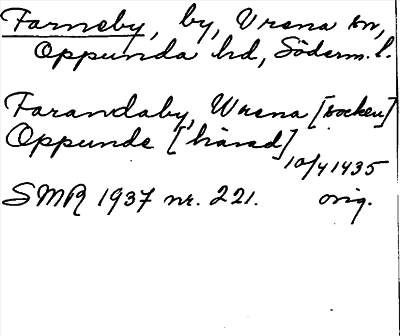 Farneby, by, Vrena sn,
Oppunda hd, Söderm. l.
Farandaby, Wrena [socken]
Oppunde [härad]
10/4 1435
SMR 1937 nr. 221. orig.